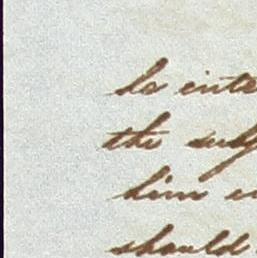 be inte
the sub
him in
should